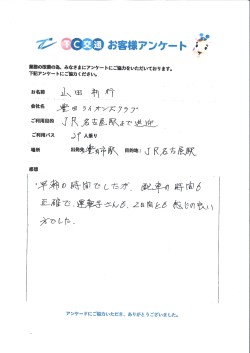 TC交通 お客様アンケート
業務の改善の為、みなさまにアンケートにご協力をいただいております。
下記アンケートにご協力ください。
お名前 山田
会社名 豊田ライオンズクラブ
ご利用目的 JR名古屋駅まで送迎
ご利用バス 人乗り
場所 出発先 豊田市駅 目的地： JR名古屋駅
感想
早朝の時間でしたが、配車の時間も
正確で、運転手さんも、2日間とも 感じの良い
方でした。
アンケートにご協力いただき、ありがとうございました。